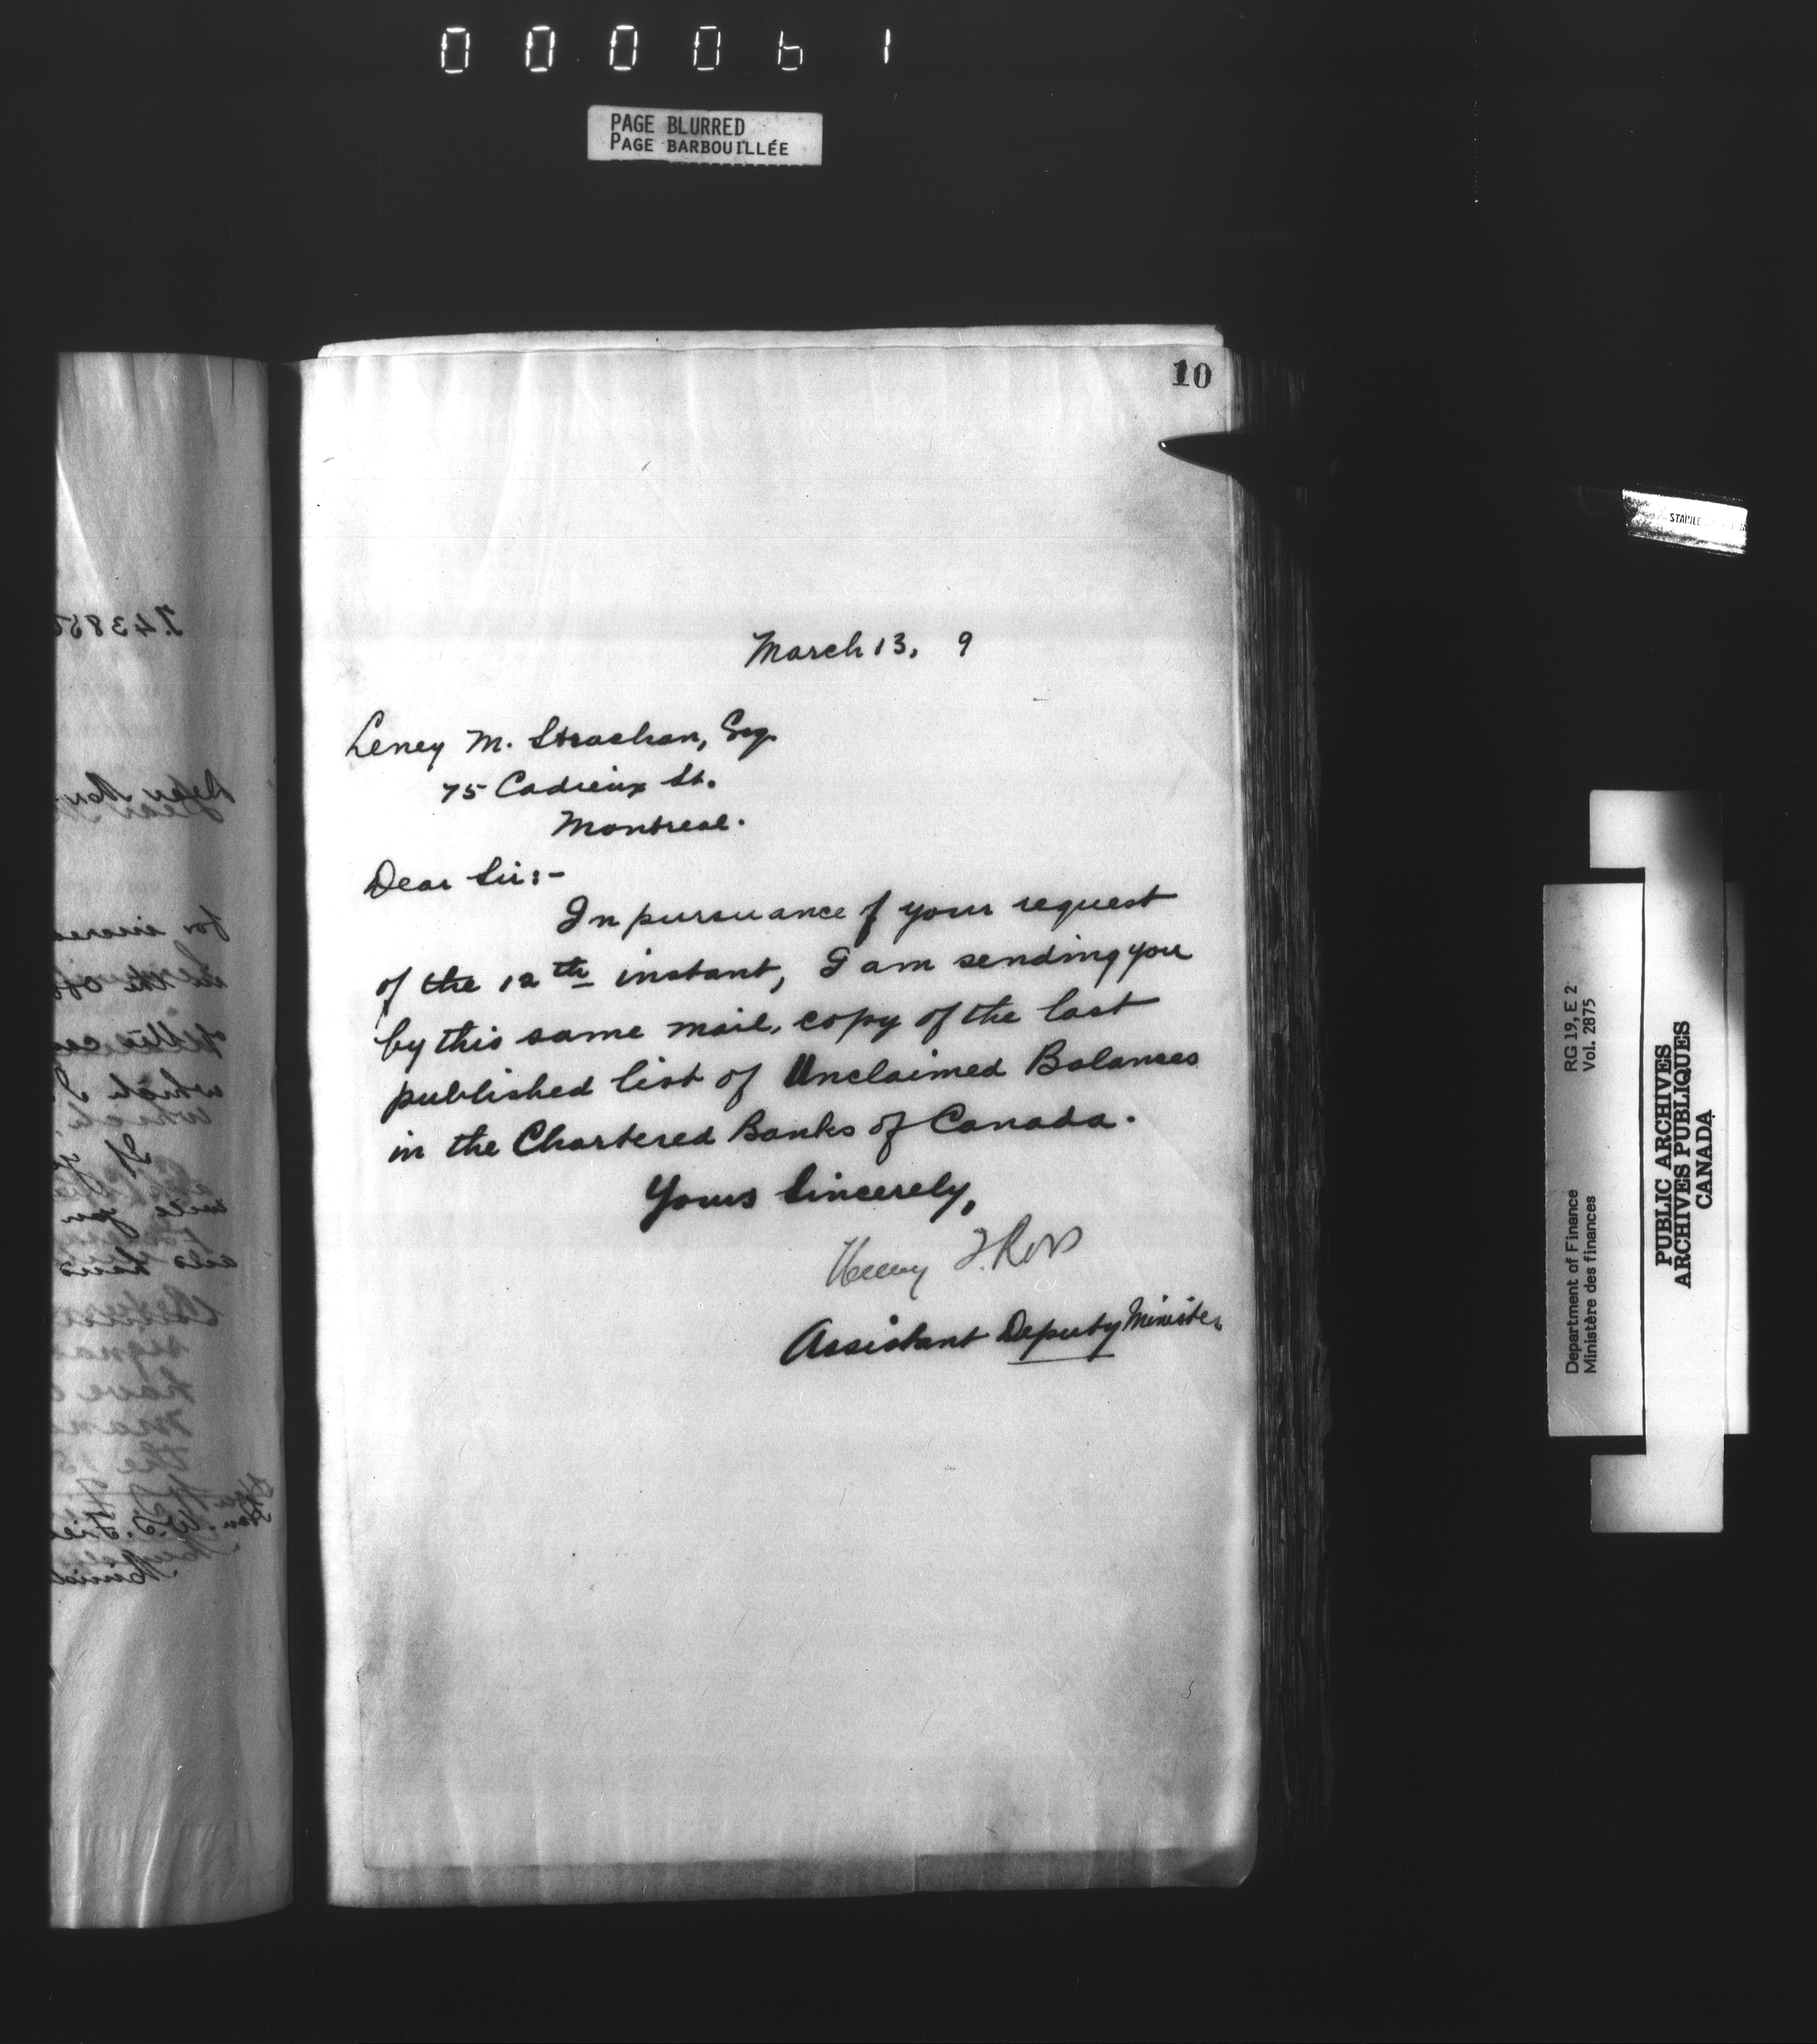 000061
PAGE BLURRED
PAGE BARBOUILLÉE
10
March 13, 9
Leney M. Strachan, Esq.
75 Cadieux St.
Montreal.
Dear Sir:-
In pursuance of your request
of the 12th instant, I am sending you
by this same mail, copy of the last
published list of Unclaimed Balances
in the Chartered Banks of Canada.
Yours Sincerely,
Henry T. Ross
Assistant Deputy Minister
Department of Finance RG 19, E 2
Ministère des finances Vol. 2875
PUBLIC ARCHIVES
ARCHIVES PUBLIQUES
CANADA